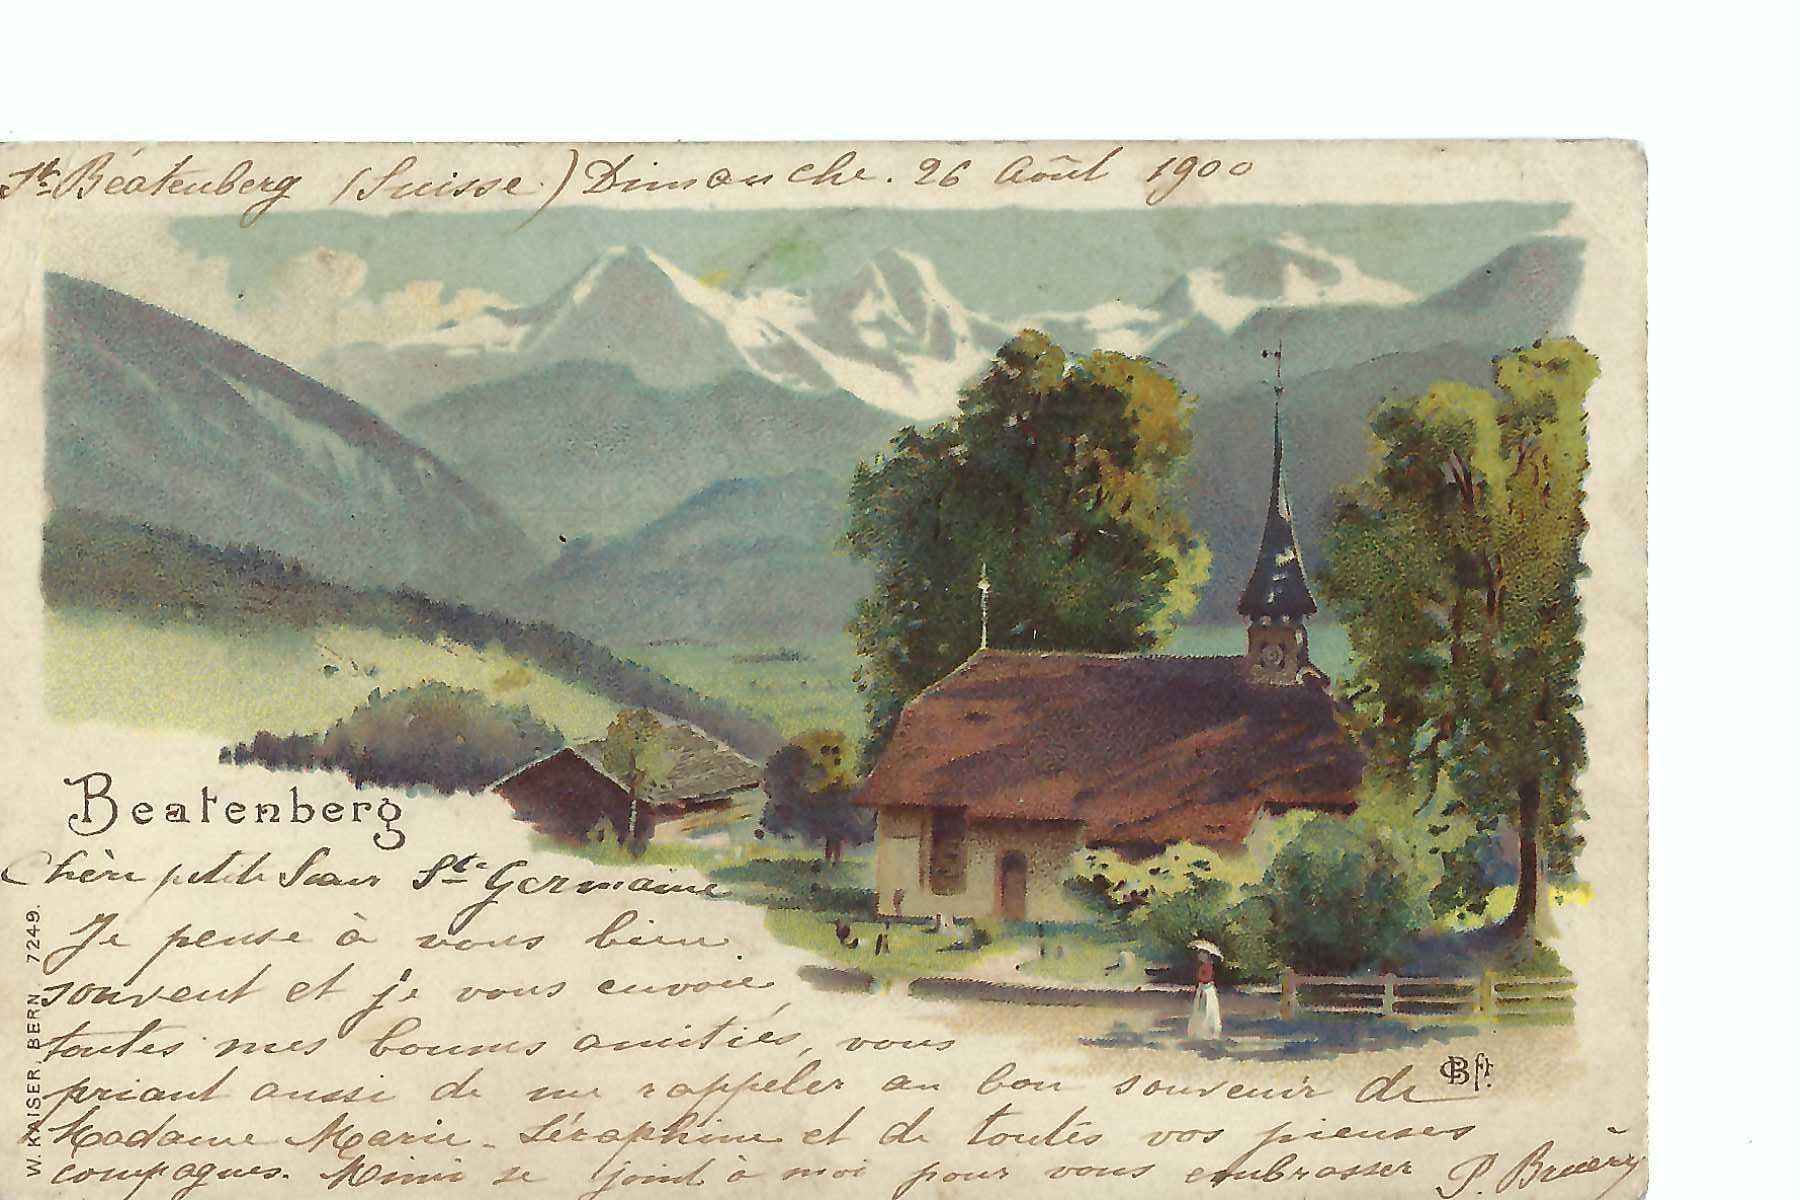 St. Béatenberg (Suisse.) Dimanche. 26 Août 1900
Beatenberg
Chère petite Sœur Ste Germaine
Je pense à vous bien
souvent et je vous envoie,
toutes mes bonnes amitiés, vous
priant aussi de me rappeler au bon souvenir de
Madame Marie-Séraphine et de toutes vos pieuses
compagnes. Mimi se joint à moi pour vous embrasser P. Bruery
W. KAISER, BERN 7249.
CB ft.